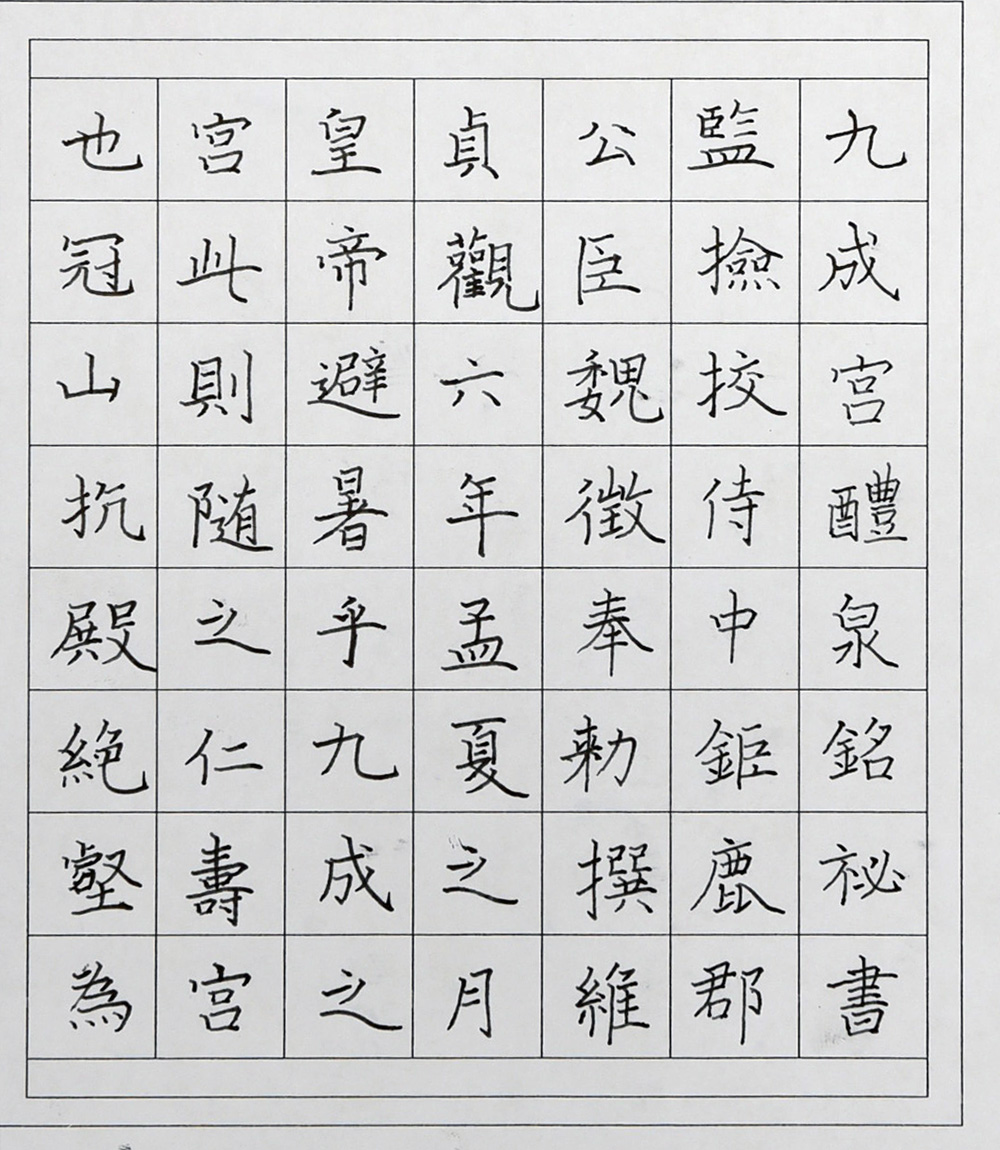 九成宮醴泉銘祕書
監撿挍侍中鉅鹿郡
公臣魏徵奉勑撰維
貞觀六年孟夏之月
皇帝避暑乎九成之
宮此則隨之仁壽宮
也冠山抗殿絕壑為